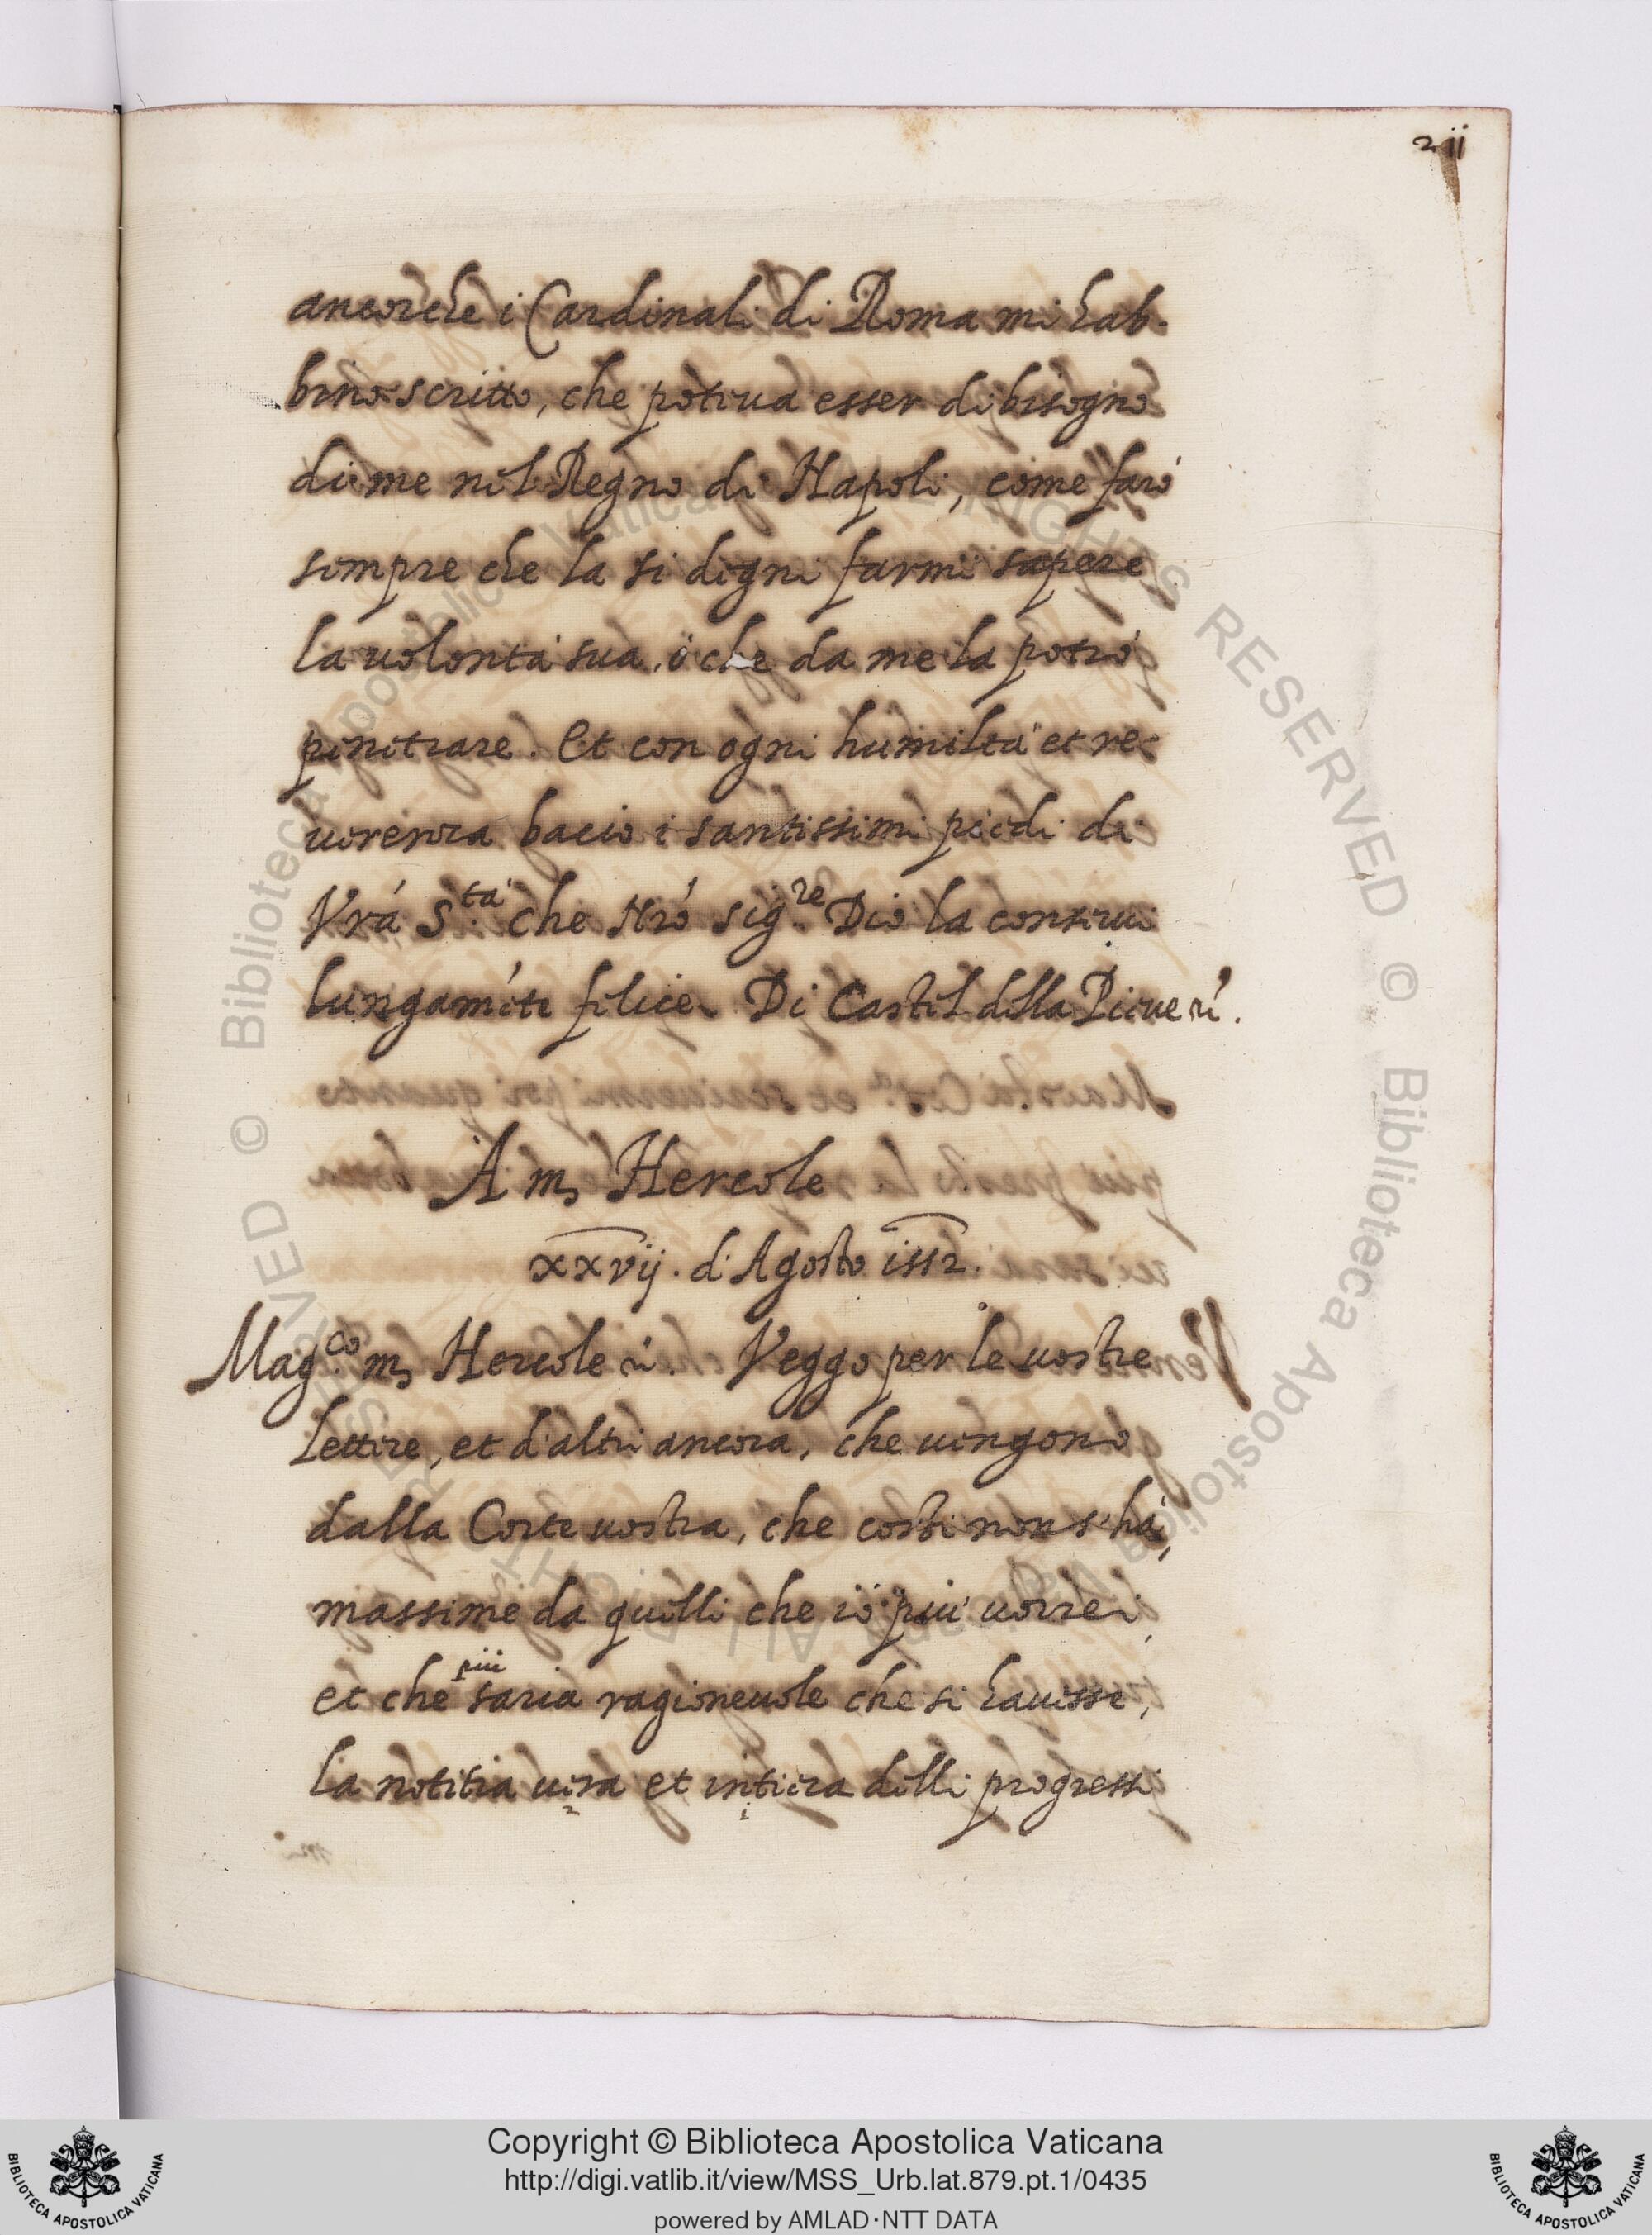 211
ancorche i Cardinali di Roma mi hab-
bino scritto, che poteua esser di bisogno
di me nel Regno di Napoli, come farò
sempre che la si degni farmi sapere
la uolontà sua, ò che da me la potrò
penetrare. Et con ogni humiltà et re-
uerenza bacio i santissimi piedi di
Vrá S.tà che Nró Sig.re Dio la conserui
lungaméte felice. Di Castel della Pieue
A m, Hercole
xxvij. d'Agosto 1552.
Mag.co m, Hercole Veggo per le uostre
lettere, et d'altri ancora, che uengono
dalla Corte uostra, che costi non s'hà,
massime da quelli che io più uorrei,
più
et che saria ragioneuole che si hauesse,
la notitia uera et intiera delli progressi
2 1
Copyright © Biblioteca Apostolica Vaticana
http://digi.vatlib.it/view/MSS_Urb.lat.879.pt.1/0435
powered by AMLAD·NTT DATA
BIBLIOTECA APOSTOLICA VATICANA
BIBLIOTECA APOSTOLICA VATICANA